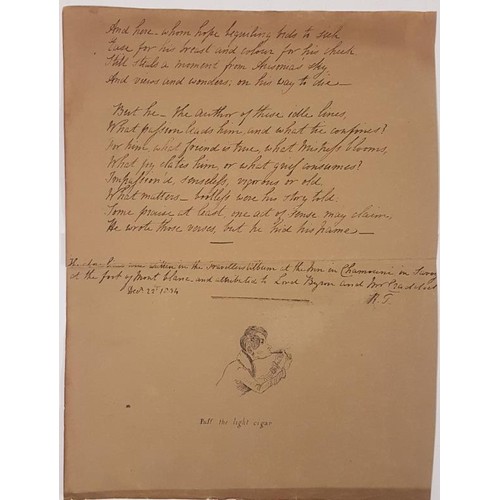 And here – whom hope beguiling bids to seek
Ease for his breast and colour for his cheek
Still steals a moment from Ausonia's sky
And views and wonders; on his way to die –
But he – the author of these idle lines,
What passion leads him, and what tie confines?
For him, what friend is true, what mistress blooms,
What joy elates him, or what grief consumes?
Impassion'd, senseless, vigorous or old,
What matters – bootless were his story told.
Some praise at least, one act of sense may claim,
He wrote these verses, but he hid his name –
in the travellers album at the Inn in Chamouni in Savoy
at the foot of Mont Blanc, and attributed to Lord Byron and
Decr 22d 1834
R. T.
Puff the light cigar